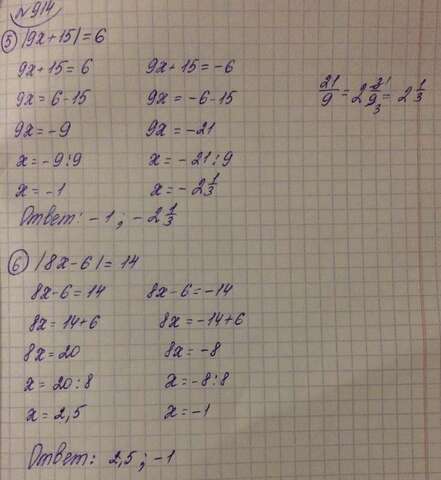 №914
5 |9x+15|=6
9x+15=6 9x+15=-6
9x=6-15 9x=-6-15 21/9=2 3/9=2 1/3
9x=-9 9x=-21
x=-9:9 x=-21:9
x=-1 x=-2 1/3
Ответ: -1; -2 1/3
6 |8x-6|=14
8x-6=14 8x-6=-14
8x=14+6 8x=-14+6
8x=20 8x=-8
x=20:8 x=-8:8
x=2,5 x=-1
Ответ: 2,5; -1